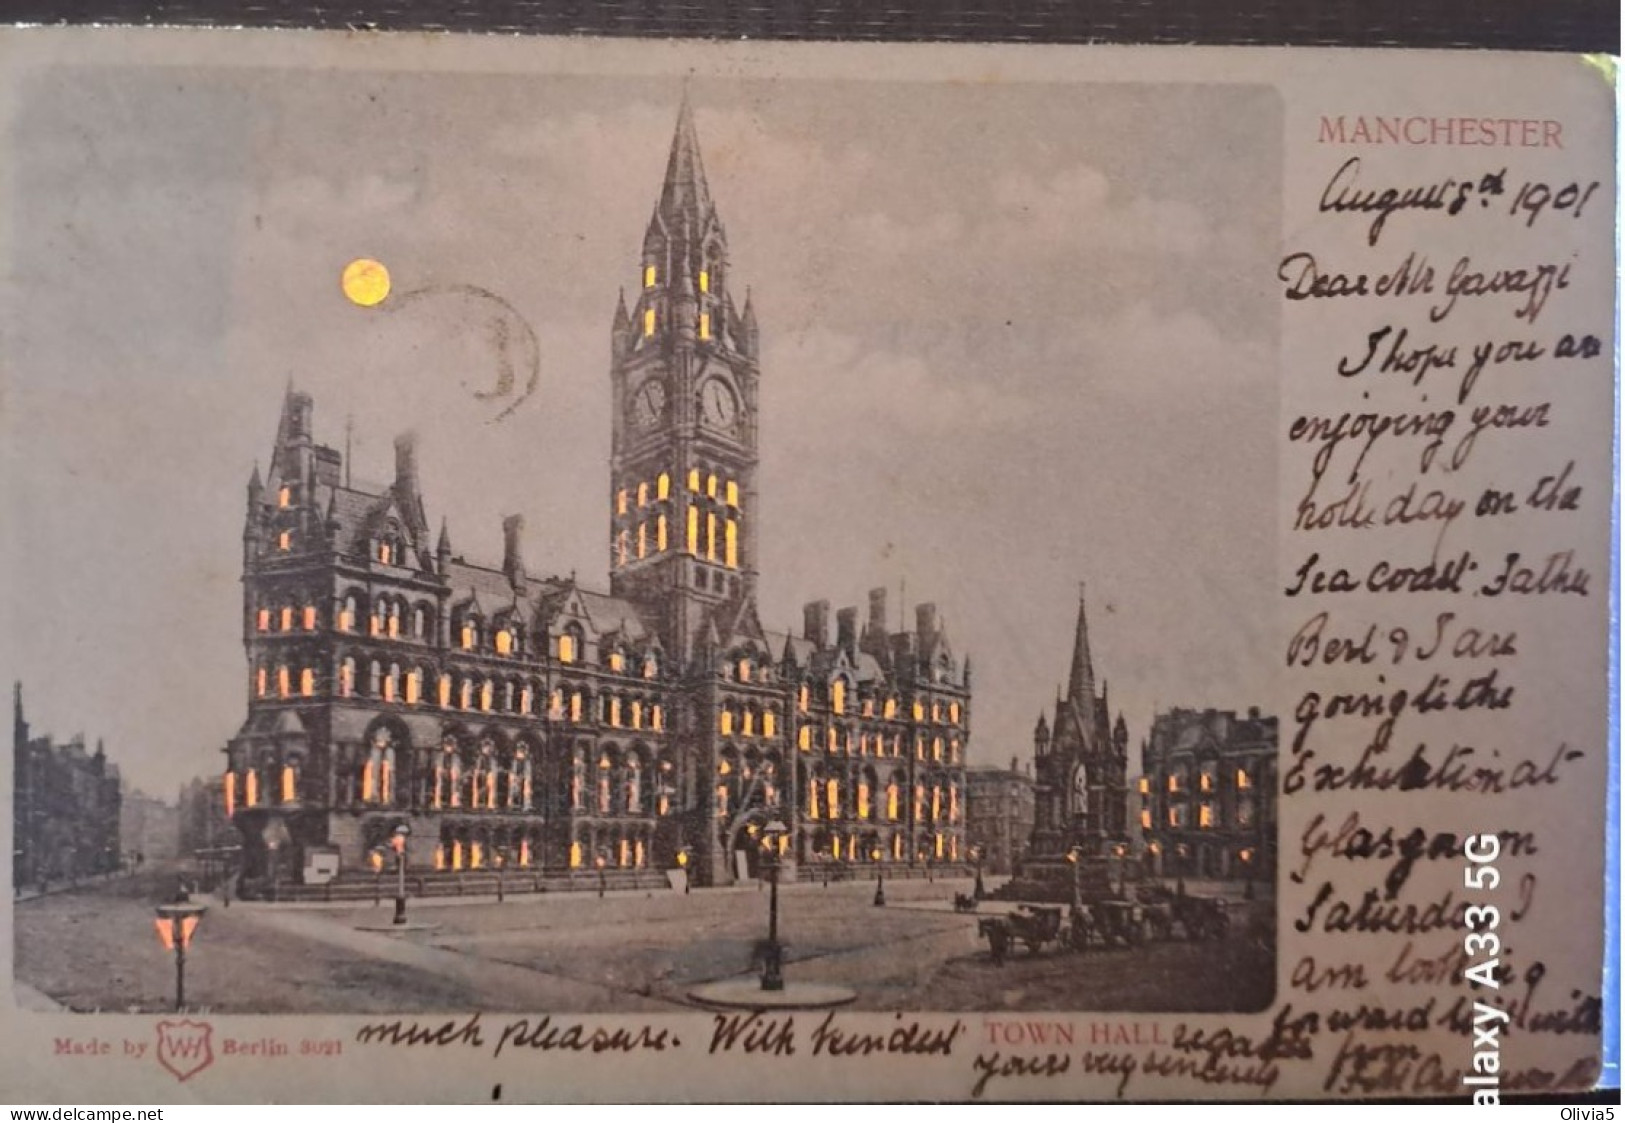 MANCHESTER
August 8th 1901
Dear Mr Gavazzi
I hope you are
enjoying your
holliday on the
Sea Coast. Father
Bert & I are
going to the
Exhibition at
Glasgow on
Saturday I
am looking
forward to it with
much pleasure. With kindest
regards from
yours very sincerely
TOWN HALL
Made by WH Berlin 3021
Galaxy A33 5G
www.delcampe.net
Olivia5